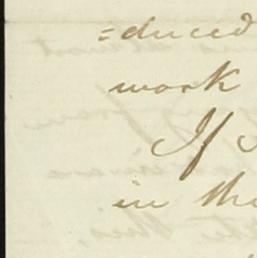 =duced
work
If
in the